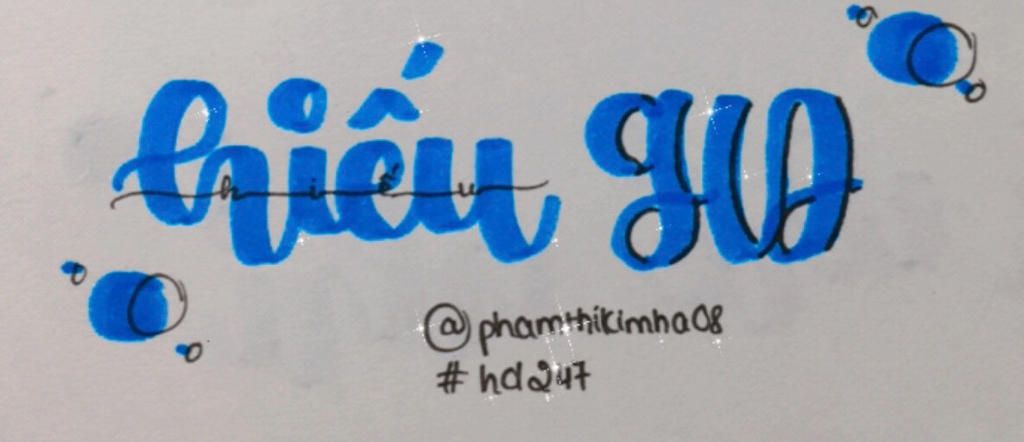 hiếu HD
hiếu
@phamthikimha08
#hd247